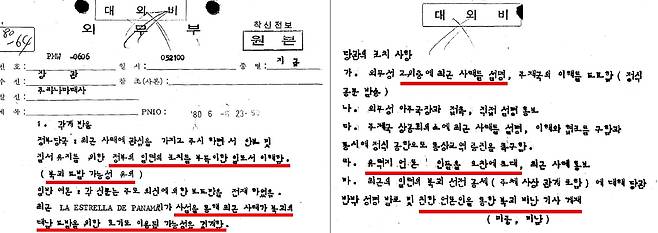 대외비
'80
-64
외무부
착신전보
원본
번호 : PMW -0606 일시 : 052100 종별 : 지급
수신 : 장관 참조(사본) :
발신 : 주파나마대사
제목 : PNIO : '80 6 -6 23:5
1. 각계 반응
정부당국 : 최근 사태에 관심을 가지고 주시 하면서 안보 및
질서 유지를 위한 정부의 일련의 조치를 부득이한 일로서 이해함.
( 북괴 도발 가능성 유의 )
일반 여론 : 각 신문은 주로 외신에 의한 보도만을 전재 하였음.
최근 LA ESTRELLA DE PANAMA 가 사설을 통해 최근 사태가 북괴의
대남 도발을 위한 호기로 이용될 가능성을 경계함.
대외비
당관의 조치 사항
가. 외무성 고위층에 최근 사태를 설명, 주재국의 이해를 도모함 ( 정식
공문 발송 )
나. 외무성 아주국장과 접촉, 직접 설명 홍보
다. 주재국 상공회의소에 최근 사태를 설명, 이해와 협조를 구함과
동시에 정식 공한으로 통상교역 증진을 촉구함.
라. 유력지 언론 인들을 오찬에 초대, 최근 사태 홍보
마. 최근의 일련의 북괴 선전 공세 ( 주재 사상 관계 포함 ) 에 대해 당관
반박 성명 발표 및 친한 언론인을 통한 북괴 비난 기사 게재
( 미중, 미남 )